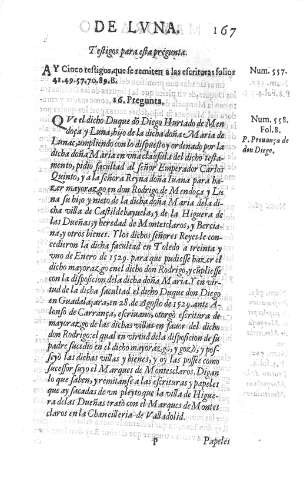 DE LVNA. 167
Testigos para esta pregunta.
AY Cinco testigos, que se remiten a las escrituras folios
41.49.57.70.89.8.
Num. 557.
16. Pregunta.
QVe el dicho Duque dõ Diego Hurtado de Men-
doça y Luna, hijo de la dicha doña Maria de
Luna, cumpliendo con lo dispuesto y ordenado por la
dicha doña Maria en vna clausula del dicho testa-
mento, pidio facultad al señor Emperador Carlos
Quinto, y a la señora Reyna doña Iuana para ha-
zar mayorazgo en don Rodrigo de Mendoça y Lu
na su hijo y nieto de la dicha doña Maria de la di-
cha villa de Castildebayuela, y de la Higuera de
las Dueñas, y heredad de Montesclaros, y Bercia-
na, y otros bienes. Y los dichos señores Reyes le con-
cedieron la dicha facultad en Toledo a treinta y
vno de Enero de 1529. para que pudiesse hazer el
dicho mayorazgo en el dicho don Rodrigo, y cũpliesse
con la disposicion de la dicha doña Maria. Y en vir-
tud de la dicha facultad el dicho Duque don Diego
en Guadalajara, en 28. de Agosto de 1529. ante A-
lonso de Carrança, escriuano, otorgò escritura de
mayorazgo de las dichas villas en fauor del dicho
don Rodrigo: el qual en virtud de la disposicion de su
padre sucedio en el dicho mayorazgo, y gozò, y pos-
seyò las dichas villas y bienes, y oy las possee como
sucessor suyo el Marques de Montesclaros. Digan
lo que saben, y remitanse a las escrituras y papeles
que ay sacadas de vn pleyto que la villa de Higue-
ra de las Dueñas tratò con el Marques de Montes
claros en la Chancilleria de Valladolid.
Num. 558.
Fol. 8.
P. Prouança de
don Diego.
P Papeles